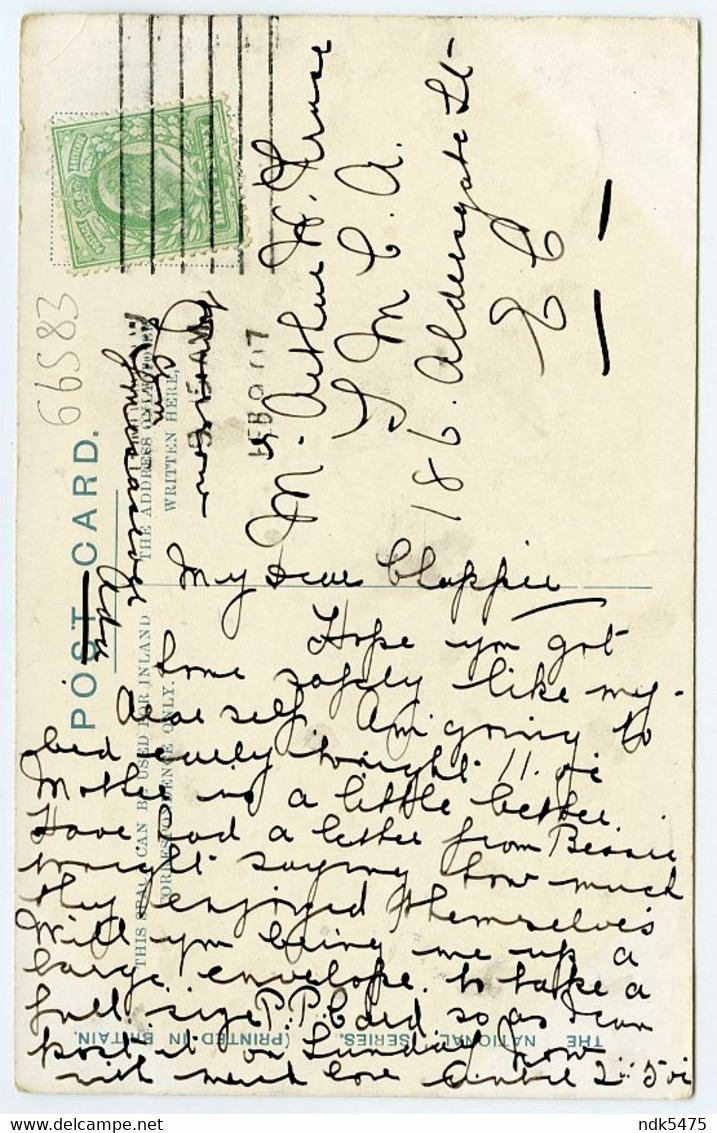 POST CARD.
THIS SPACE CAN BE USED FOR INLAND
CORRESPONDENCE ONLY.
THE ADDRESS ONLY TO BE
WRITTEN HERE.
THE "NATIONAL" SERIES. (PRINTED IN BRITAIN.)
66583
FEB 9 07
Mr. Arthur W.
Y M C A.
186. Aldersgate St
E C
My dear Chappie
Hope you got
home safely like my-
dear self. Am going to
bed early tonight 11.
Mother is a little better.
Have had a letter from Bessie
tonight saying how much
they enjoyed themselves
Will you bring me up a
large envelope to take a
full size P.P. Card so as I can
post it on Sunday. Now
with much love until 2.50
ndk5475